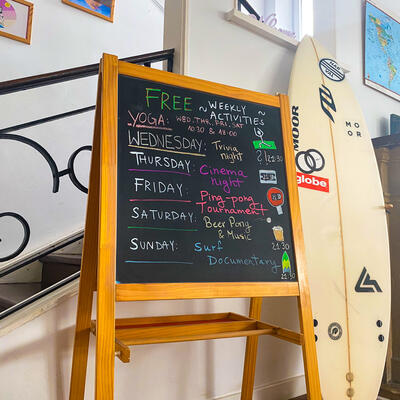 FREE ~ WEEKLY ~
ACTIVITIES
YOGA: WED, THR, FRI, SAT
10:30 & 18:00
WEDNESDAY: Trivia night 21:30
THURSDAY: Cinema night
FRIDAY: Ping-pong Tournament
SATURDAY: Beer Pong & Music 21:30
SUNDAY: Surf Documentary 21:30
MOOR
MOOR
globe